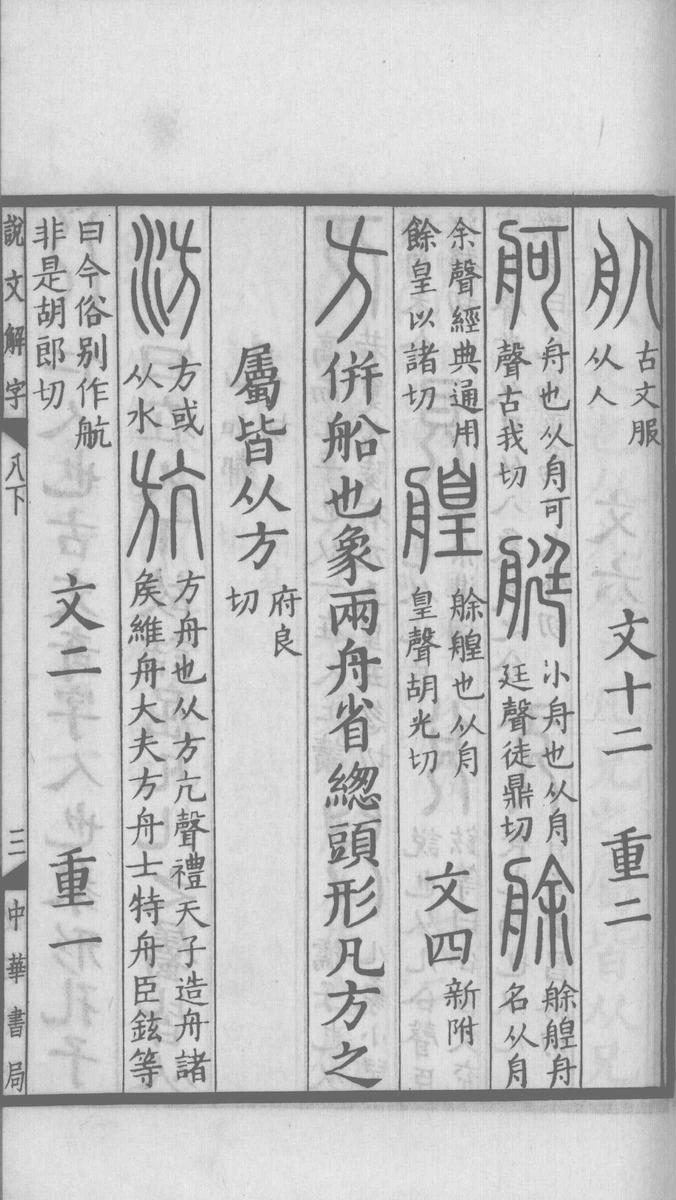 𦨕 古文服从人 文十二 重二
舸 舟也从舟可聲古我切 艇 小舟也从舟廷聲徒鼎切 艅 艅艎舟名从舟
余聲經典通用餘皇以諸切 艎 艅艎也从舟皇聲胡光切 文四 新附
方 併船也象兩舟省緫頭形凡方之
屬皆从方 府良切
汸 方或从水 斻 方舟也从方亢聲禮天子造舟諸矦維舟大夫方舟士特舟臣鉉等
曰今俗别作航非是胡郎切 文二 重一
說文解字 八下 三 中華書局